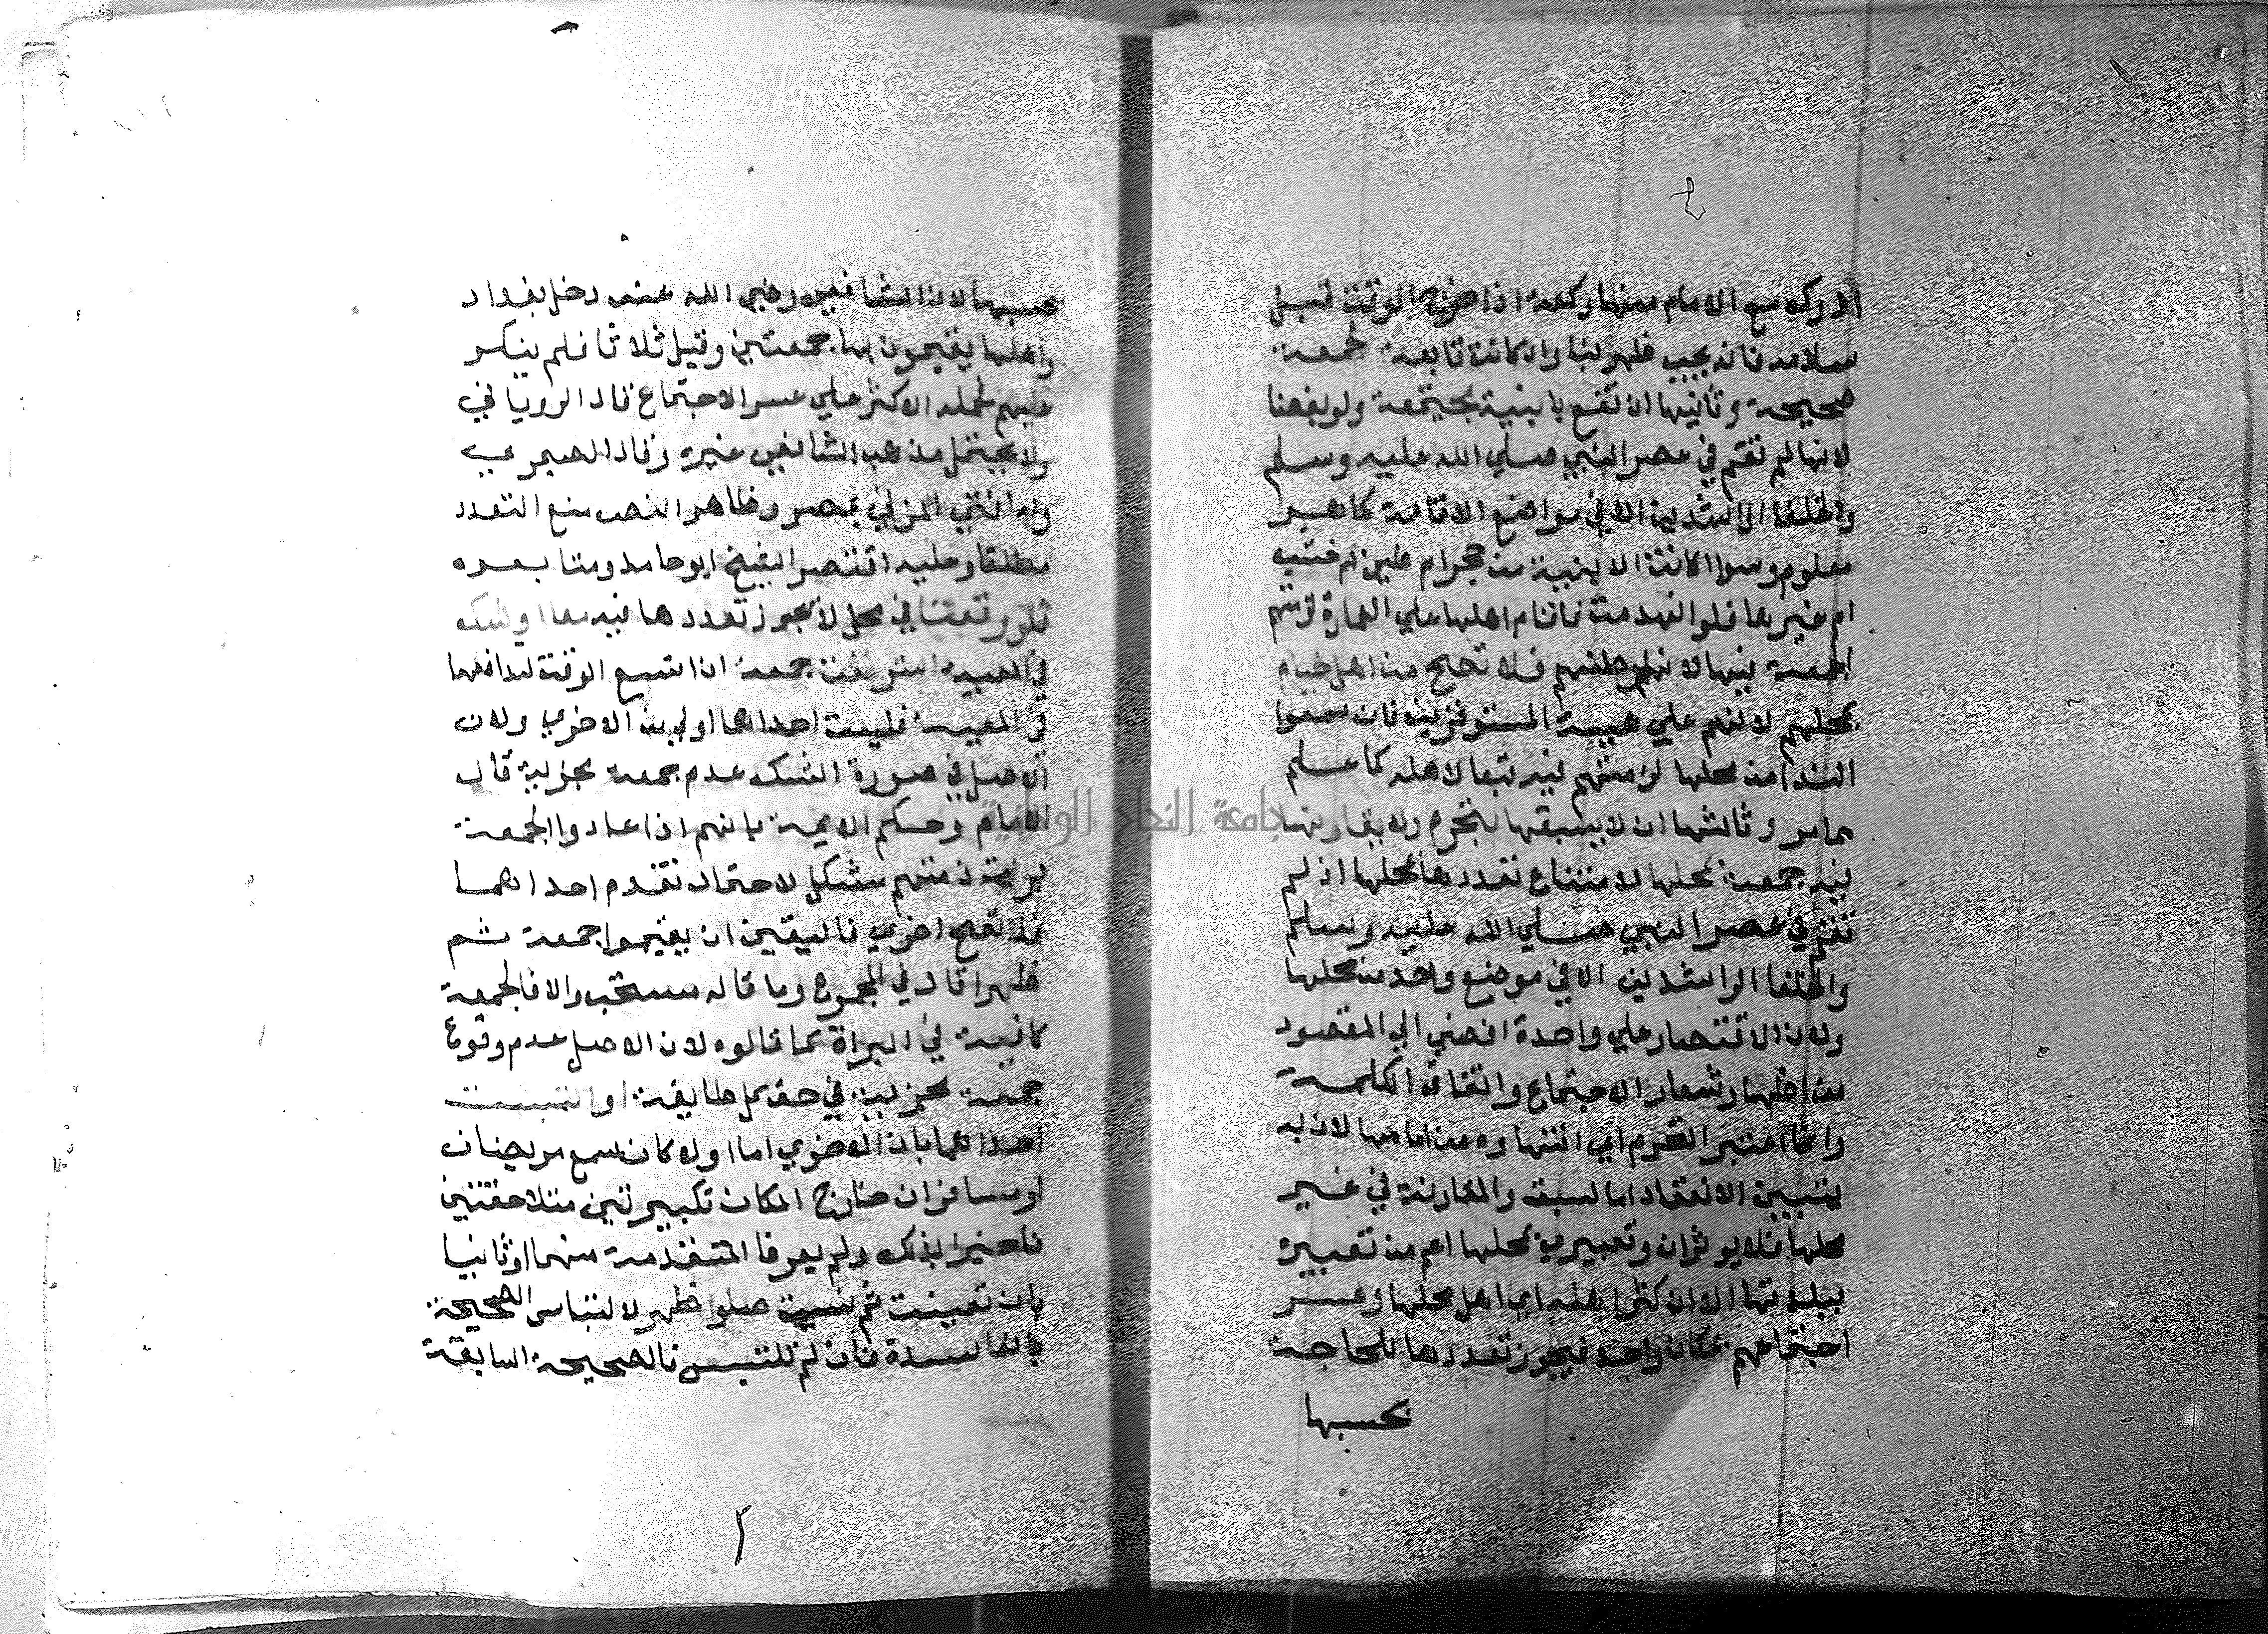 ادرك مع الامام منها ركعة اذا خرج الوقت قبل
سلامه فانه يجب ظهر بنا وان كانت تابعة لجمعة
صحيحة وثانيها ان تقع بابنية مجتمعة ولو بفضا
لانها لم تقم في عصر النبي صلي الله عليه وسلم
والخلفا الراشدين الا في مواضع الاقامة كما هو
معلوم وسوا كانت الابنية من حجر ام طين ام خشب
ام غيرها فلو انهدمت فاقام اهلها علي العمارة لزمتهم
الجمعة فيها لانها وطنهم فلا تصح من اهل خيام
بمحلهم لانهم علي هيية المستوفزين فان سمعوا
الندا من محلها لزمتهم فيه تبعا لاهله كما علم
مما مر وثالثها ان لا يسبقها بتحرم ولا يقارنها
فيه جمعة بمحلها لامتناع تعددها بمحلها اذ لم
تقم في عصر النبي صلي الله عليه وسلم
والخلفا الراشدين الا في موضع واحد من محلها
ولان الاقتصار علي واحدة افضي الي المقصود
من اظهار شعار الاجتماع واتفاق الكلمة
وانما اعتبر التحرم اي انتهاوه من امامها لان به
يتبين الانعقاد اما السبق والمقارنة في غير
محلها فلا يوثران وتعبيري بمحلها اعم من تعبيره
ببلدتها الا ان كثر اهله اي اهل محلها وعسر
اجتماعهم بمكان واحد فيجوز تعددها للحاجة
بحسبها
بحسبها لان الشافعي رضي الله عنه دخل بغداد
واهلها يقيمون بها جمعتين وقيل ثلاثا فلم ينكر
عليهم فحمله الاكثر علي عسر الاجتماع قال الرويا في
ولا يحتمل مذهب الشافعي غيره وقال الصيمري
وبه افتي المزني بمصر وظاهر النص منع التعدد
مطلقا وعليه اقتصر الشيخ ابو حامد ومتابعوه
فلو وقعتا في محل لا يجوز تعددها فيه معا او شك
في المعية استونفت جمعة ان اتسع الوقت لتدافعهما
في المعية فليست احداهما اولي من الاخري ولان
الاصل في صورة الشك عدم جمعة مجزية قال
الامام وحكم الايمة بانهم اذا عادوا الجمعة
بريت ذمتهم مشكل لاحتمال تقدم احداهما
فلا تصح اخري فاليقين ان يقيموا جمعة ثم
ظهرا قال في المجموع وما قاله مستحب والا فالجمعة
كافية في البراة كما قالوه لان الاصل عدم وقوع
جمعة مجزية في حق كل طايفة او التبست
احداهما بالاخري اما اولا كان سمع مريضان
او مسافران خارج المكان تكبيرتين متلاحقتين
فاخبرا بذلك ولم يعرفا المتقدمة منهما او ثانيا
بان تعينت ثم نسيت صلوا ظهر لالتباس الصحيحة
بالفاسدة فان لم تلتبس فالصحيحة السابقة
جامعة النجاح الوطنية